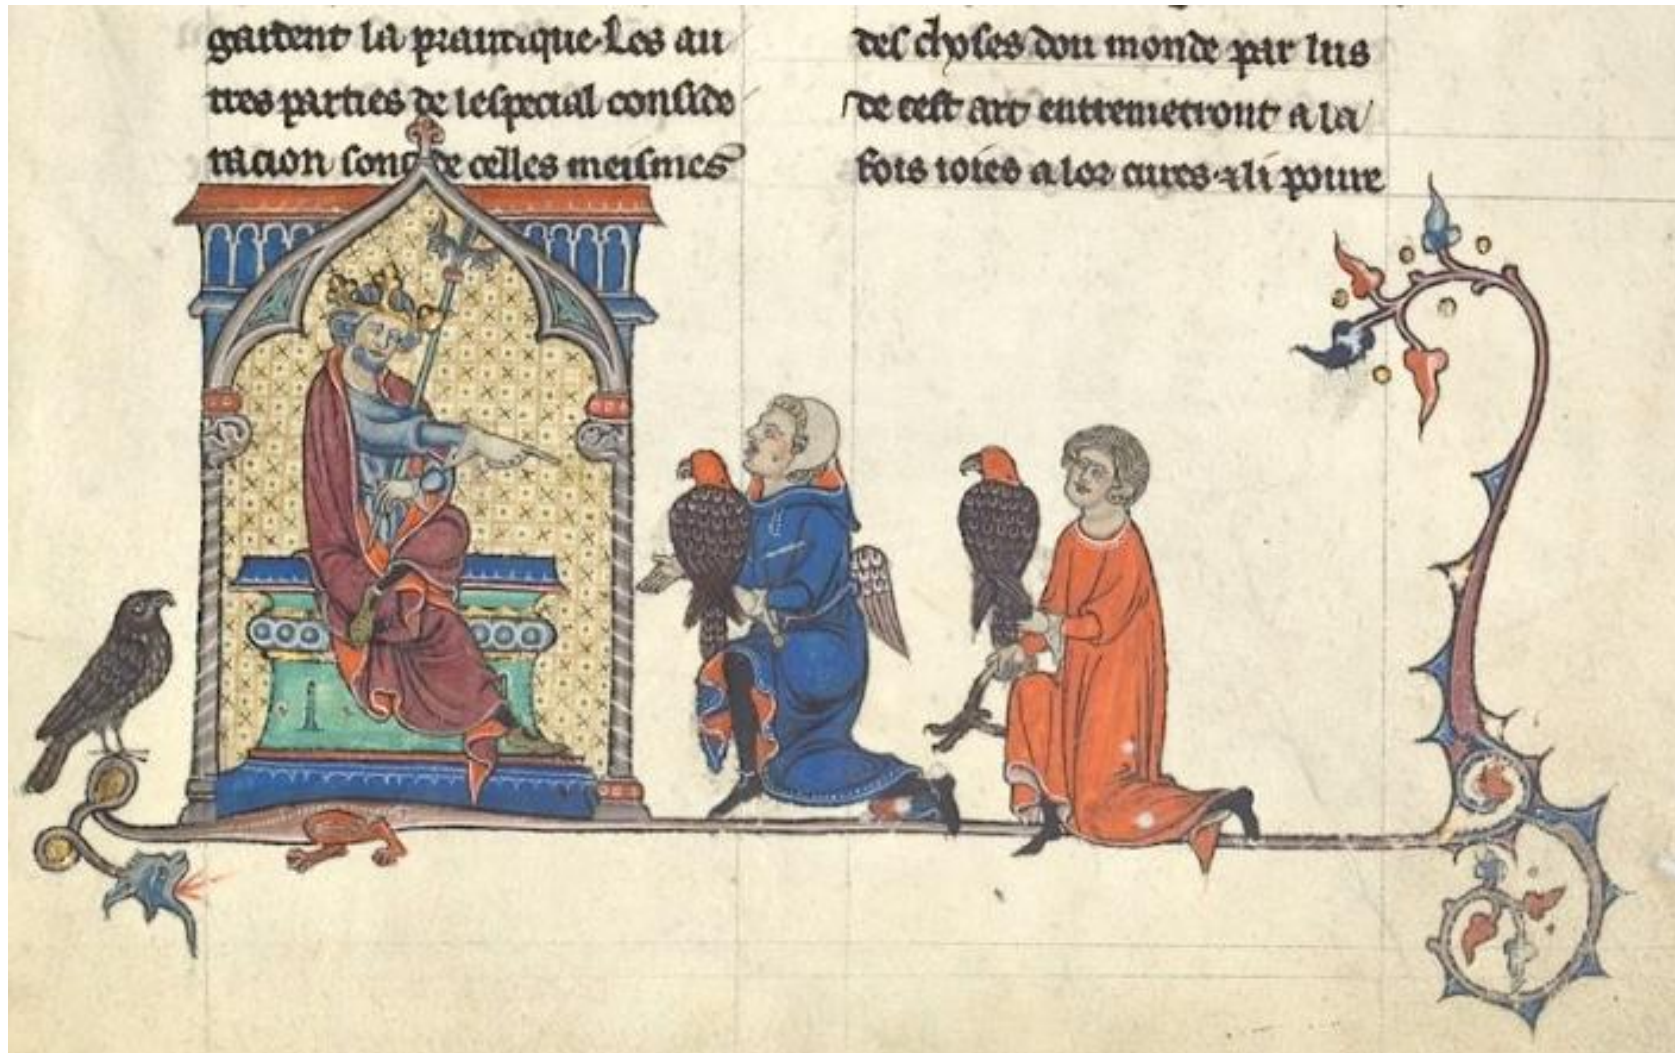 gardent la pratique. Les au
tres parties de lespecial conside
racion sont de celles meismes
des choses dou monde par lus
de cest art entremetront a la
fois ioies a lor cures. & li poure